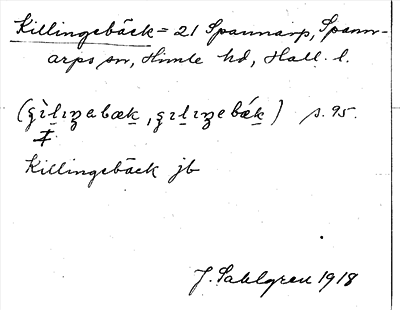 Killingebäck = 21 Spannarp, Spann-
arps sn, Himle hd, Hall. l.
(gìlıŋabæk, gılıŋebǽk) s. 95.
Killingebäck jb
J. Sahlgren 1918